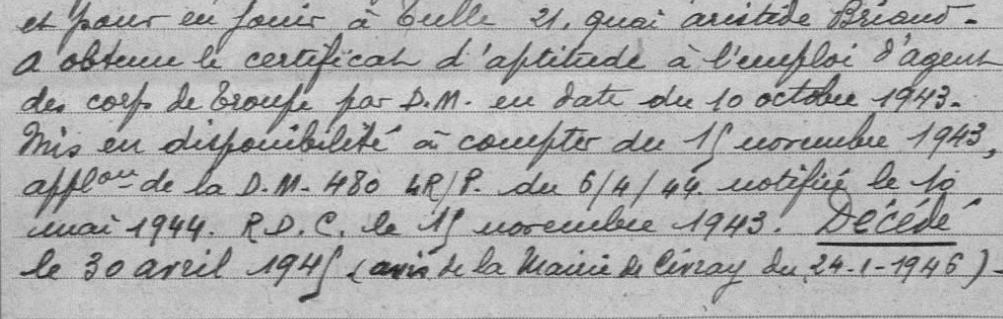 et pour en jouir à Tulle 21, quai aristide Briand.
A obtenu le certificat d'aptitude à l'emploi d'agent
des corps de troupe par D.M. en date du 10 octobre 1943.
Mis en disponibilité à compter du 15 novembre 1943,
applon de la D.M. 480 4R/P. du 6/4/44 notifiée le 10
mai 1944. R.D.C. le 15 novembre 1943. Décédé
le 30 avril 1945 (avis de la Mairie de Civray du 24-1-1946)-